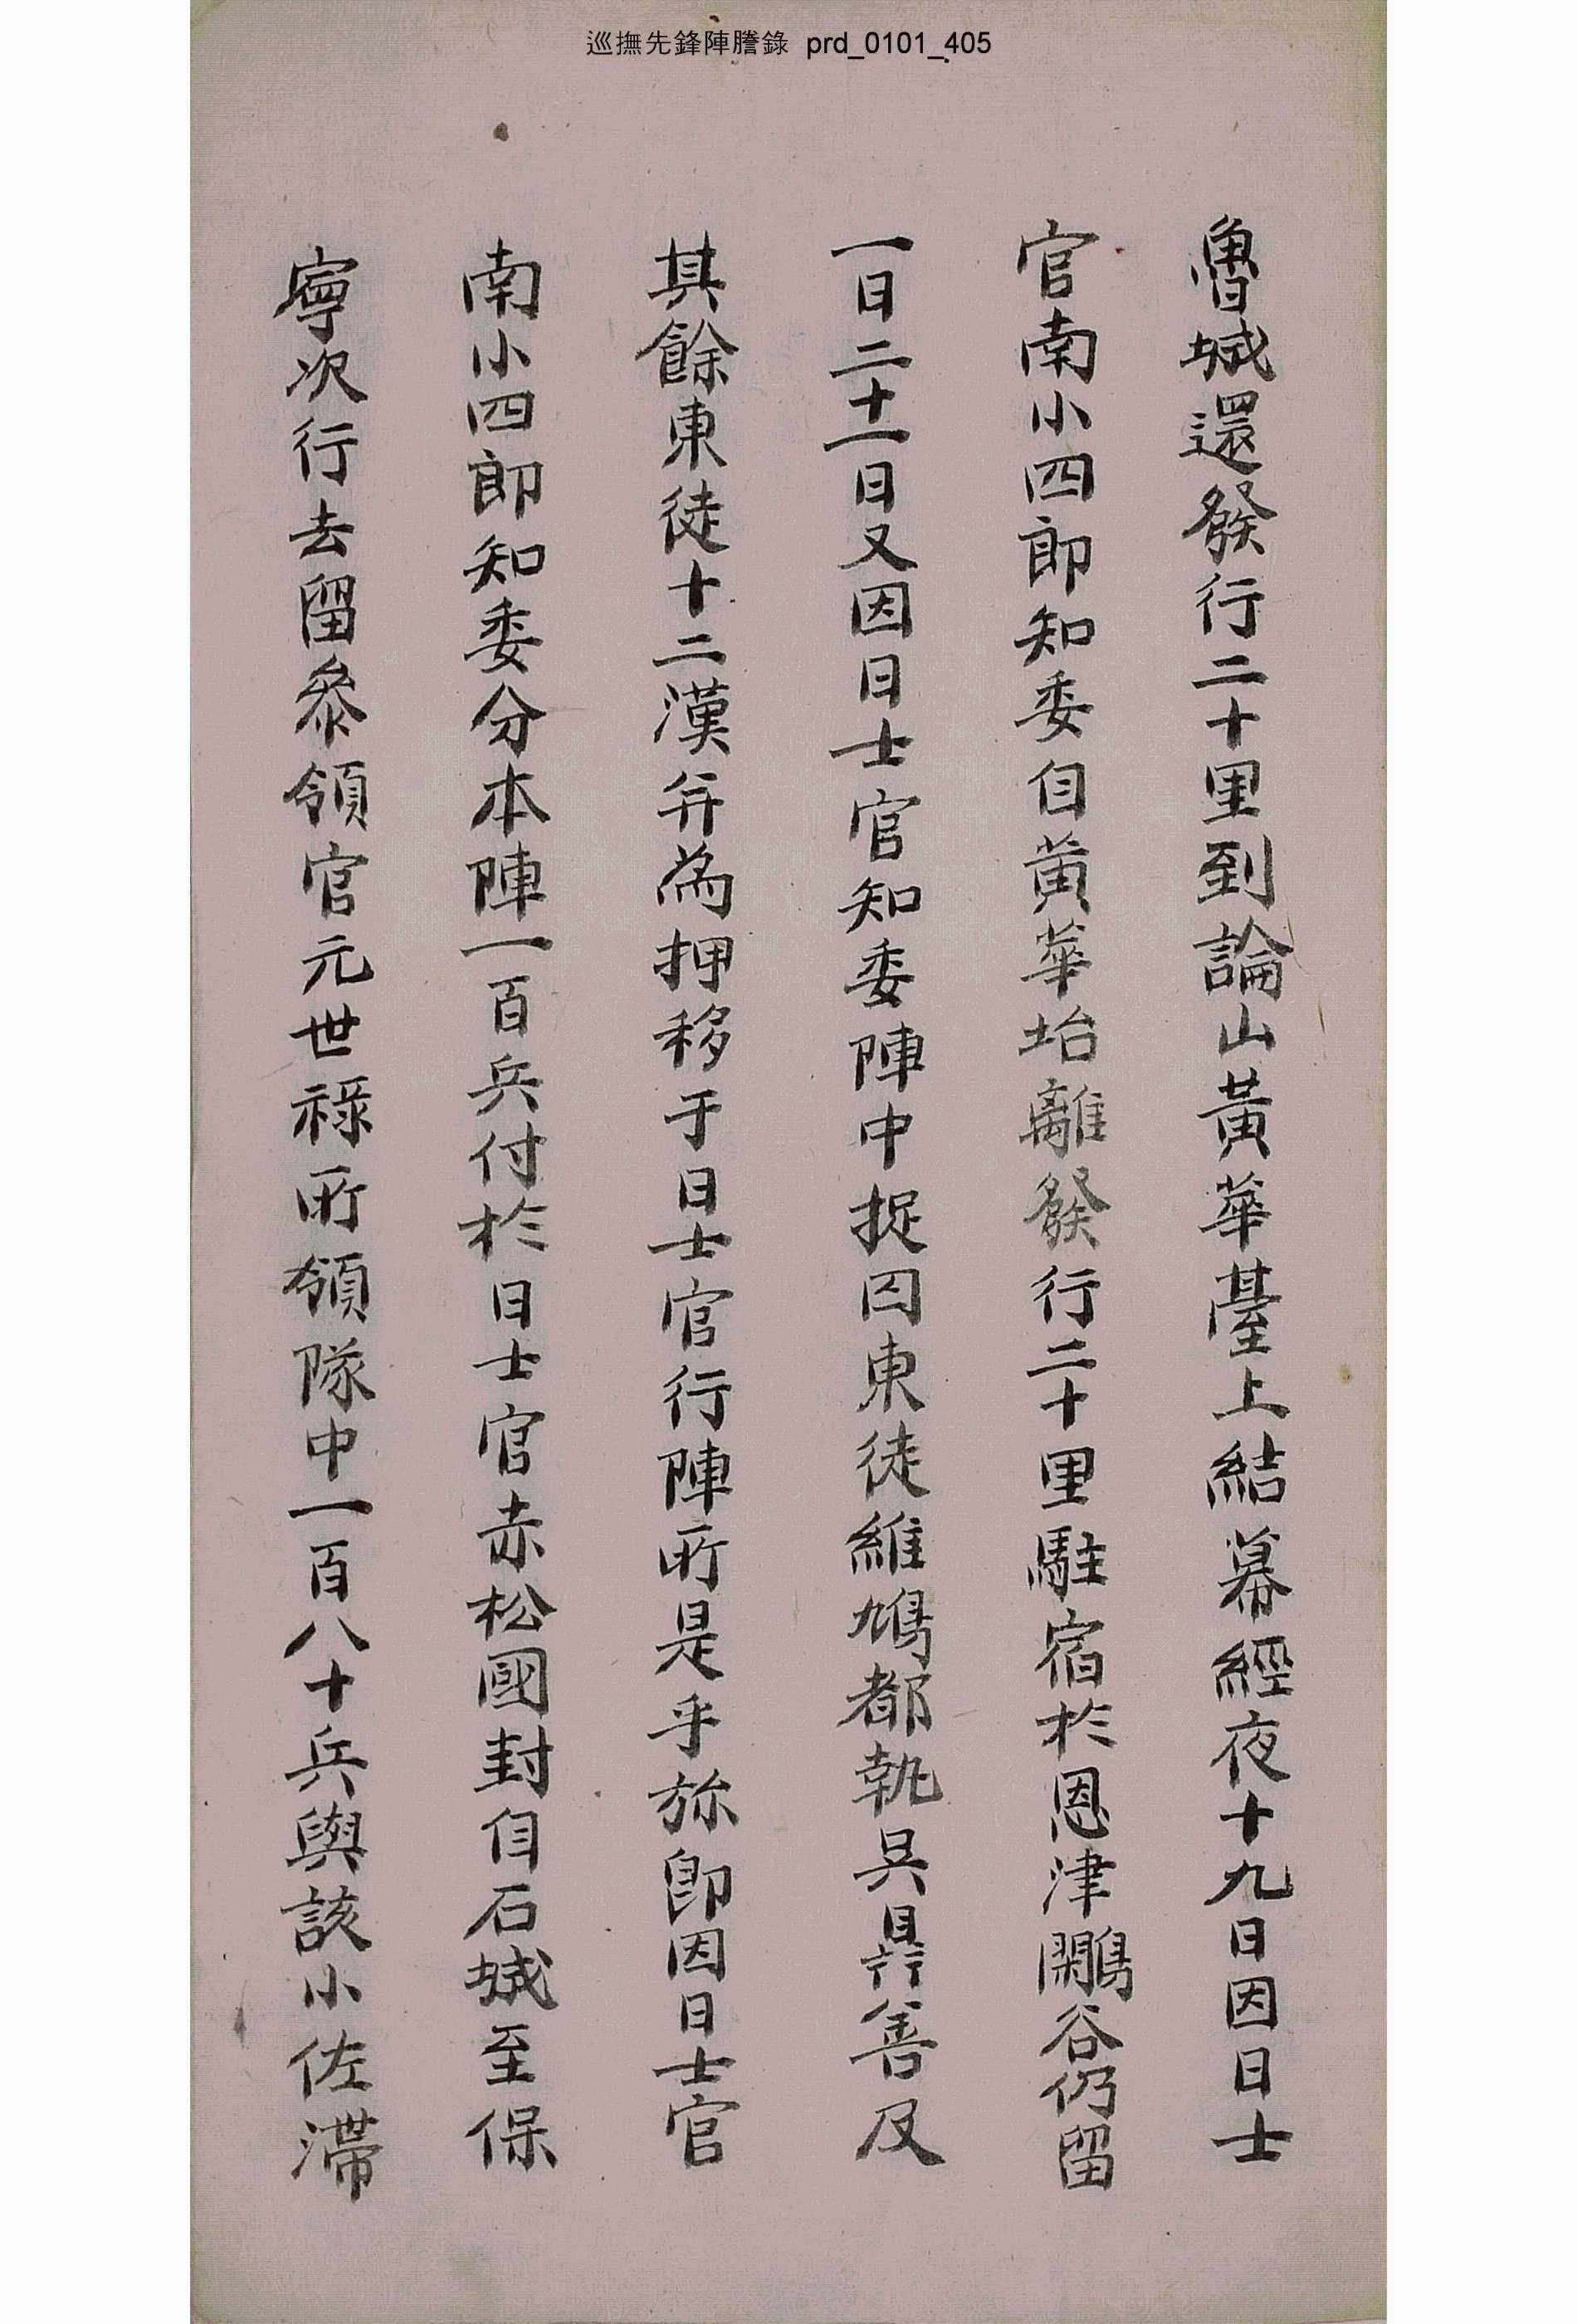 巡撫先鋒陣謄錄 prd_0101_405
魯城還發行二十里到論山黃華臺上結幕經夜十九日因日士
官南小四郎知委自黃華坮離發行二十里駐宿於恩津鷳谷仍留
一日二十一日又因日士官知委陣中捉囚東徒維鳩都執吳鼎善及
其餘東徒十二漢幷為押移于日士官行陣所是乎旀卽因日士官
南小四郎知委分本陣一百兵付於日士官赤松國封自石城至保
寧次行去留參領官元世祿所領隊中一百八十兵與該小佐滯